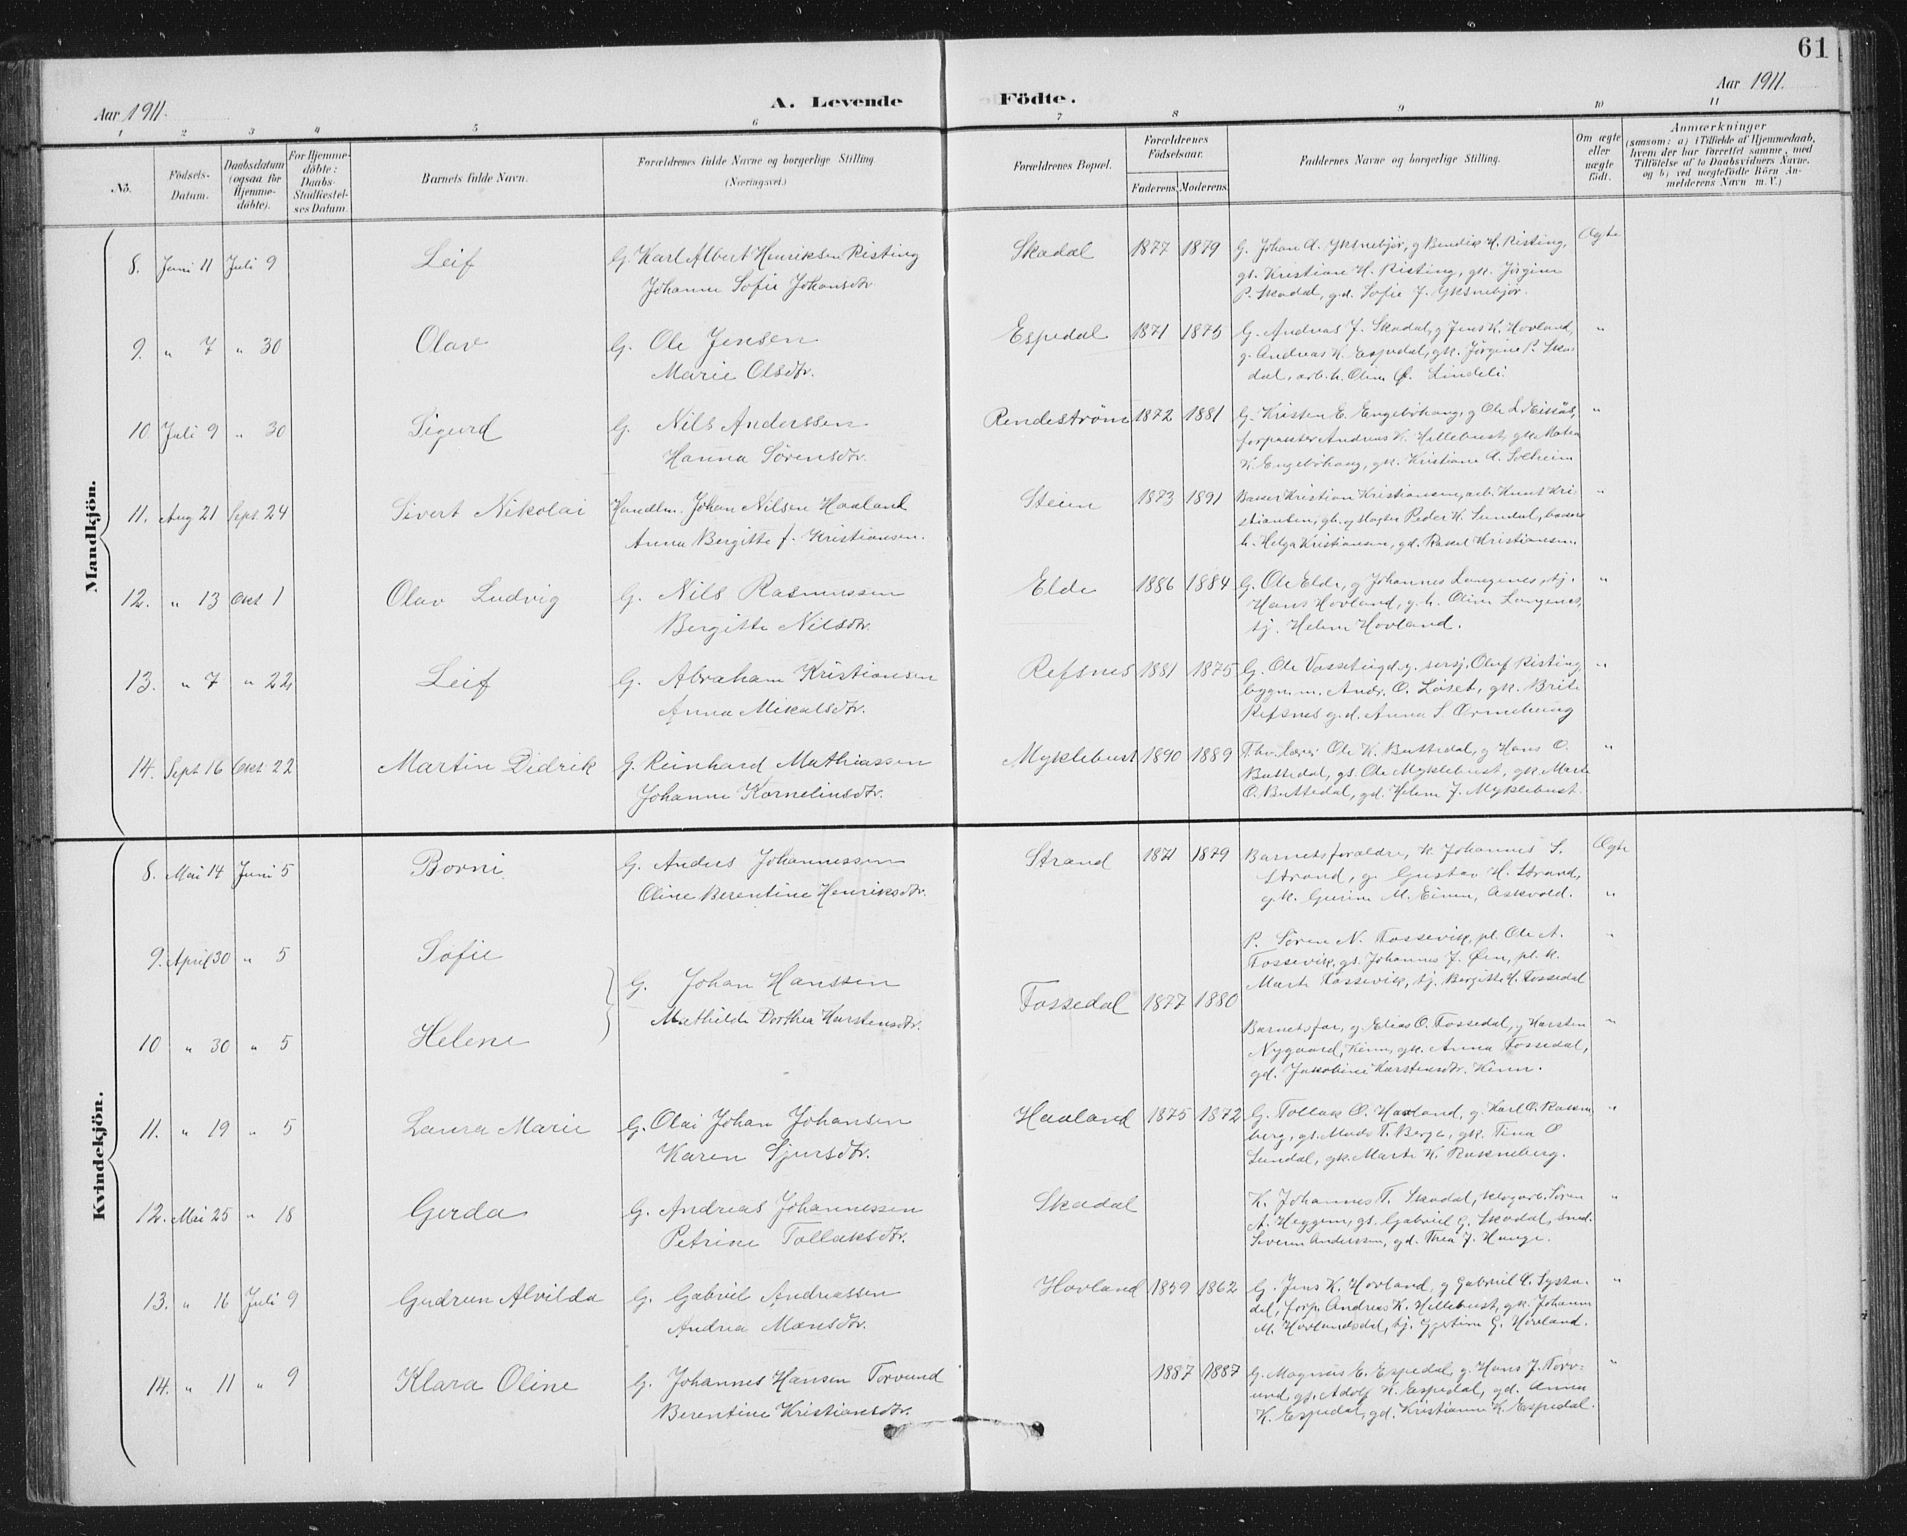 61
Aar 1911. A. Levende Födte. Aar 1911.
1 2 3 4 5 6 7 8 9 10 11
No.
Födsels-
Datum.
Daabsdatum
(ogsaa for
Hjemme-
döbte).
For Hjemme-
döbte:
Daabs-
Stadfæstel-
ses Datum.
Barnets fulde Navn.
Forældrenes fulde Navne og borgerlige Stilling
(Næringsvei.)
Forældrenes Bopæl.
Forældrenes
Födselsaar.
Faderens. Moderens.
Faddernes Navne og borgerlige Stilling.
Om ægte
eller
uægte
födt.
Anmærkninger
(saasom: a) i Tilfælde af Hjemmedaab,
hvem der har forrettet samme, med
Tilföielse af to Daabsvidners Navne,
og b) ved uægtefödte Börn An-
melderens Navn m. V.)
Mandkjön.
8. Juni 11 Juli 9 Leif
G. Karl Albert Henriksen Risting
Johanne Sofie Johansdtr.
Skadal 1877 1879
G. Johan A. Yksnebjør, g Bendik H. Risting,
gs. Kristian H. Risting, gk. Jørgine
P. Skadal, gd. Sofie J. Yksnebjør.
Ægte
9. " 7 " 30 Olav
G. Ole Jensen
Marie Olsdtr.
Espedal 1871 1875
G. Andreas J. Skadal, g Jens K. Hovland,
g. Andreas K. Espedal, gk. Jørgine P. Ska-
dal, arb. h. Oline Ø. Lindeli.
"
10. Juli 9 " 30 Sigurd
G. Nils Anderssen
Hanna Sørensdtr.
Rendeström 1872 1881
G. Kristen E. Engebøhaug, g Ole L.
forpagter Andreas K. Hillebust, gk. Matea
K. Engebøhaug, gk. Kristiane A. Solheim
"
11. Aug 21 Sept 24 Sivert Nikolai
Handlm. Johan Nilsen Haaland
Anna Bergitte f. Kristiansen.
Steien 1873 1891
Baker Kristian Kristiansen, arb. Knut Kri-
stiansen, gk. og slagter Peder K. Sundal, bakers
h. Helga Kristiansen, gd. Rakel Kristiansen.
"
12. " 13 Okt 1 Olav Ludvig
G. Nils Rasmussen
Bergitte Nilsdtr.
Elde 1886 1884
G. Ole Elde, g Johannes Langenes, tj.
Hans Hovland, g. h. Oline Langenes,
tj. Helene Hovland.
"
13. " 7 " 22 Leif
G. Abraham Kristiansen
Anna Mikalsdtr.
Refsnes 1881 1875
G. Ole Vassetingd. g. sersj. Oluf Risting,
bygn. m. Andr. O. Løset, gk. Brite
Refsnes g.d. Anna S. Ormehaug
"
14. Sept 16 Okt 22 Martin Didrik
G. Reinhard Mathiassen
Johanne Korneliusdtr.
Myklebust 1890 1889
Fhv. lærer Ole K. Buttedal, g Hans O.
Buttedal, gs. Ole Myklebust, gk. Marte
O. Buttedal, gd. Helene J. Myklebust.
"
Kvindekjön.
8. Mai 14 Juni 5 Borni
G. Anders Johannessen
Oline Berentine Henriksdtr.
Strand 1871 1879
Barnets forældre, K. Johannes S.
Strand, g. Gustav H. Strand,
gk. Gurine M. Einen, Askvold.
Ægte
"
9. April 30 " 5 Sofie
G. Johan Hanssen
Mathilde Dorthea Karstensdtr.
Fossedal 1877 1880
P. Søren N. Fossevik, pl. Ole A.
Fossevik, gs. Johannes J. Øen, pl. k.
Marte Fossevik, tj. Bergitte H. Fossedal
"
10 " 30 " 5 Helene
Barnets far, g. Elias O. Fossedal, g Karsten
Nygaard, Kinn, gk. Anna Fossedal,
gd. Jakobine Karstensdtr. Kinn.
"
11. " 19 " 5 Laura Marie
G. Olai Johan Johansen
Karen Sjursdtr.
Haaland 1875 1872
G. Tollak O. Haaland, g. Karl O. Rakne-
berg, gs. Mads T. Berge, gk. Tina O
Sundal, gk. Marte K. Rakneberg.
"
12. Mai 25 " 18 Gerda
G. Andreas Johannessen
Petrine Tollaksdtr.
Skadal
K. Johannes T. Skadal, skogarb. Søren
A. Heggem, gs. Gabriel G. Skadal, smed
Severin Anderssen, gd. Thea J. Hauge.
"
13. " 16 Juli 9 Gudrun Alvilda
G. Gabriel Andreassen
Andrea Monsdtr.
Hovland 1859 1862
G. Jens K. Hovland, g Gabriel A. Systa-
dal, forp. Andreas K. Hillebust, gk. Johanne
M. Hovlandsdal, tj. G. Hovland.
"
14. " 11 " 9 Klara Oline
G. Johannes Hansen Torvund
Berentine Kristiansdtr.
1887 1887
G. Magnus E. Espedal, g Hans J. Torv-
und, gs. Adolf K. Espedal, gd. Anna
K. Espedal, gd. Kristianne K. Espedal.
"